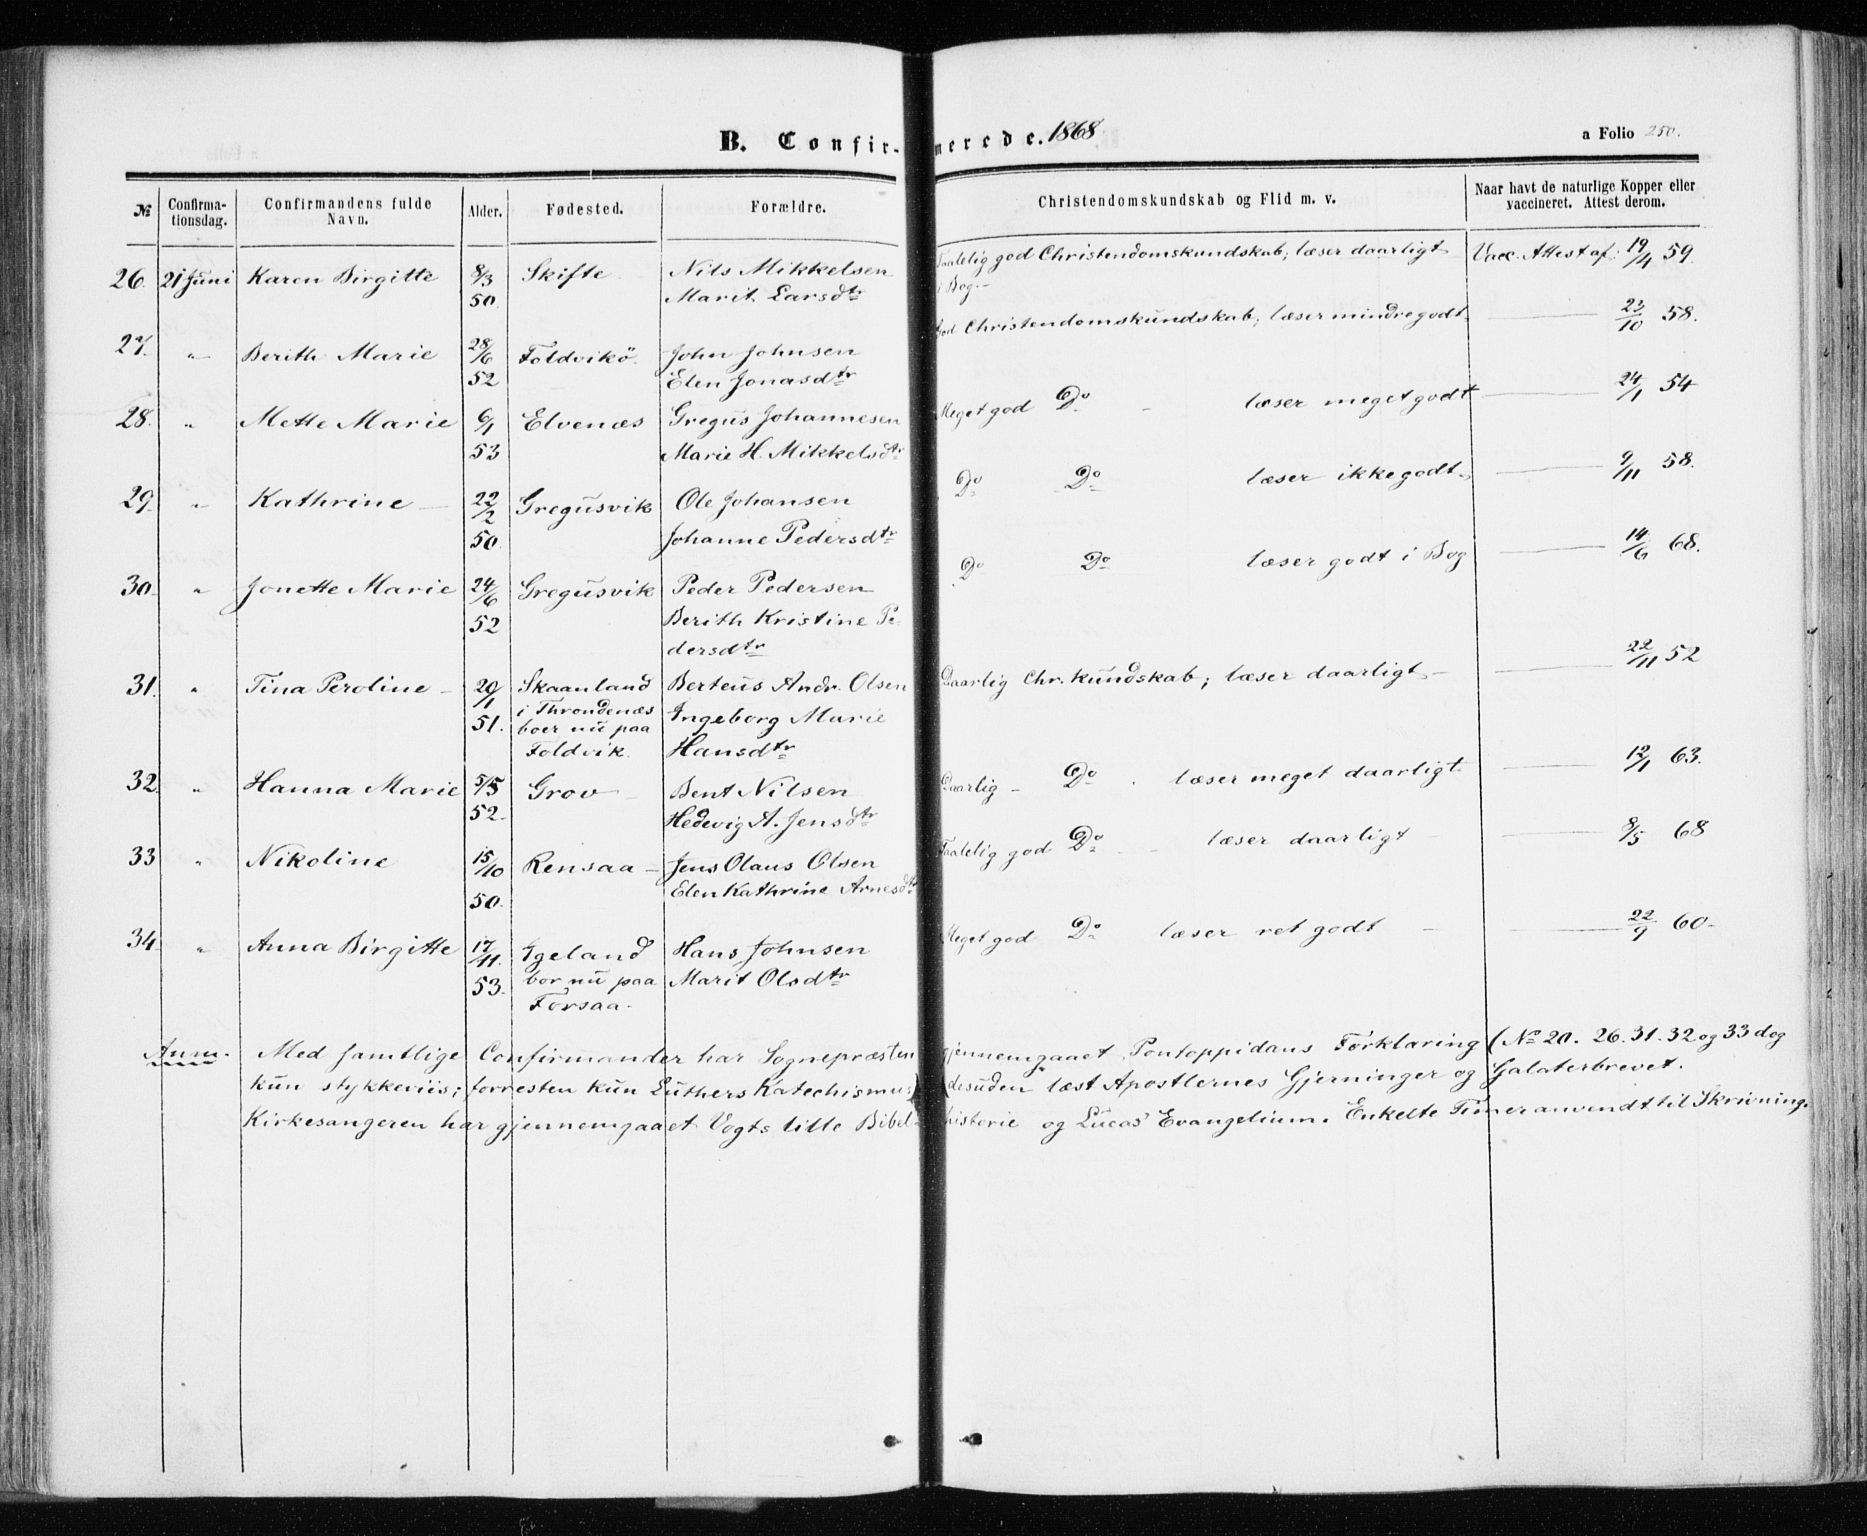 B. Confirmerede. 1868
a Folio 250.
№ Confirmationsdag. Confirmandens fulde Navn. Alder. Fødested. Forældre. Christendomskundskab og Flid m. v. Naar havt de naturlige Kopper eller vaccineret. Attest derom.
26. 21 Juni Karen Birgitte 8/3 50. Skifte. Nils Mikkelsen Taalelig god Christendomskundskab; læser daarligt Vacc. Attest af: 19/4 59.
Marit Larsdtr i Bog. —
27. " Berith Marie 28/6 52 Foldvikö. John Johnsen God Christendomskundskab; læser mindre godt. 23/10 58.
Elen Jonasdtr
28. " Mette Marie 6/1 53 Elvenæs Gregus Johannesen Meget god Do læser meget godt 24/1 54
Marie H. Mikkelsdtr
29. " Kathrine 22/2 50. Gregusvik Ole Johansen Do Do læser ikke godt. 9/11 58.
Johanne Pedersdtr
30. " Jonette Marie 24/6 52 Gregusvik Peder Pedersen Do Do læser godt i Bog 14/6 68.
Berith Kristine Pe-
dersdtr
31. " Tina Peroline 20/1 51. Skaanland Berteus Andr. Olsen Daarlig Chr. kundskab; læser daarligt 22/11 52
i Throndenæs Ingeborg Marie
boer nu paa
Foldvik. Hansdtr
32. " Hanna Marie 5/5 52. Grov Bent Nilsen Daarlig — Do læser meget daarligt. 12/1 63.
Hedevig A. Jensdtr
33 " Nikoline 15/10 50. Rensaa Jens Olaus Olsen Taalelig god Do læser daarligt 8/5 68
Elen Kathrine Arnesdtr
34. " Anna Birgitte 17/11. 53. Ygeland Hans Johnsen Meget god Do læser ret godt 22/9 60.
bor nu paa Marit Olsdtr
Forsaa.
Anm. Med samtlige Confirmander har Sognepræsten gjennemgaaet Pontoppidans Förklaring (No 20. 26. 31. 32 og 33 dog
kun stykkeviis; forresten kun Luthers Katechismus) desuden læst Apostlernes Gjerninger og Galaterbrevet.
Kirkesangeren har gjennemgaaet Vogts lille Bibel-historie og Lucas' Evangelium. Enkelte Timer anvendt til Skrivning.